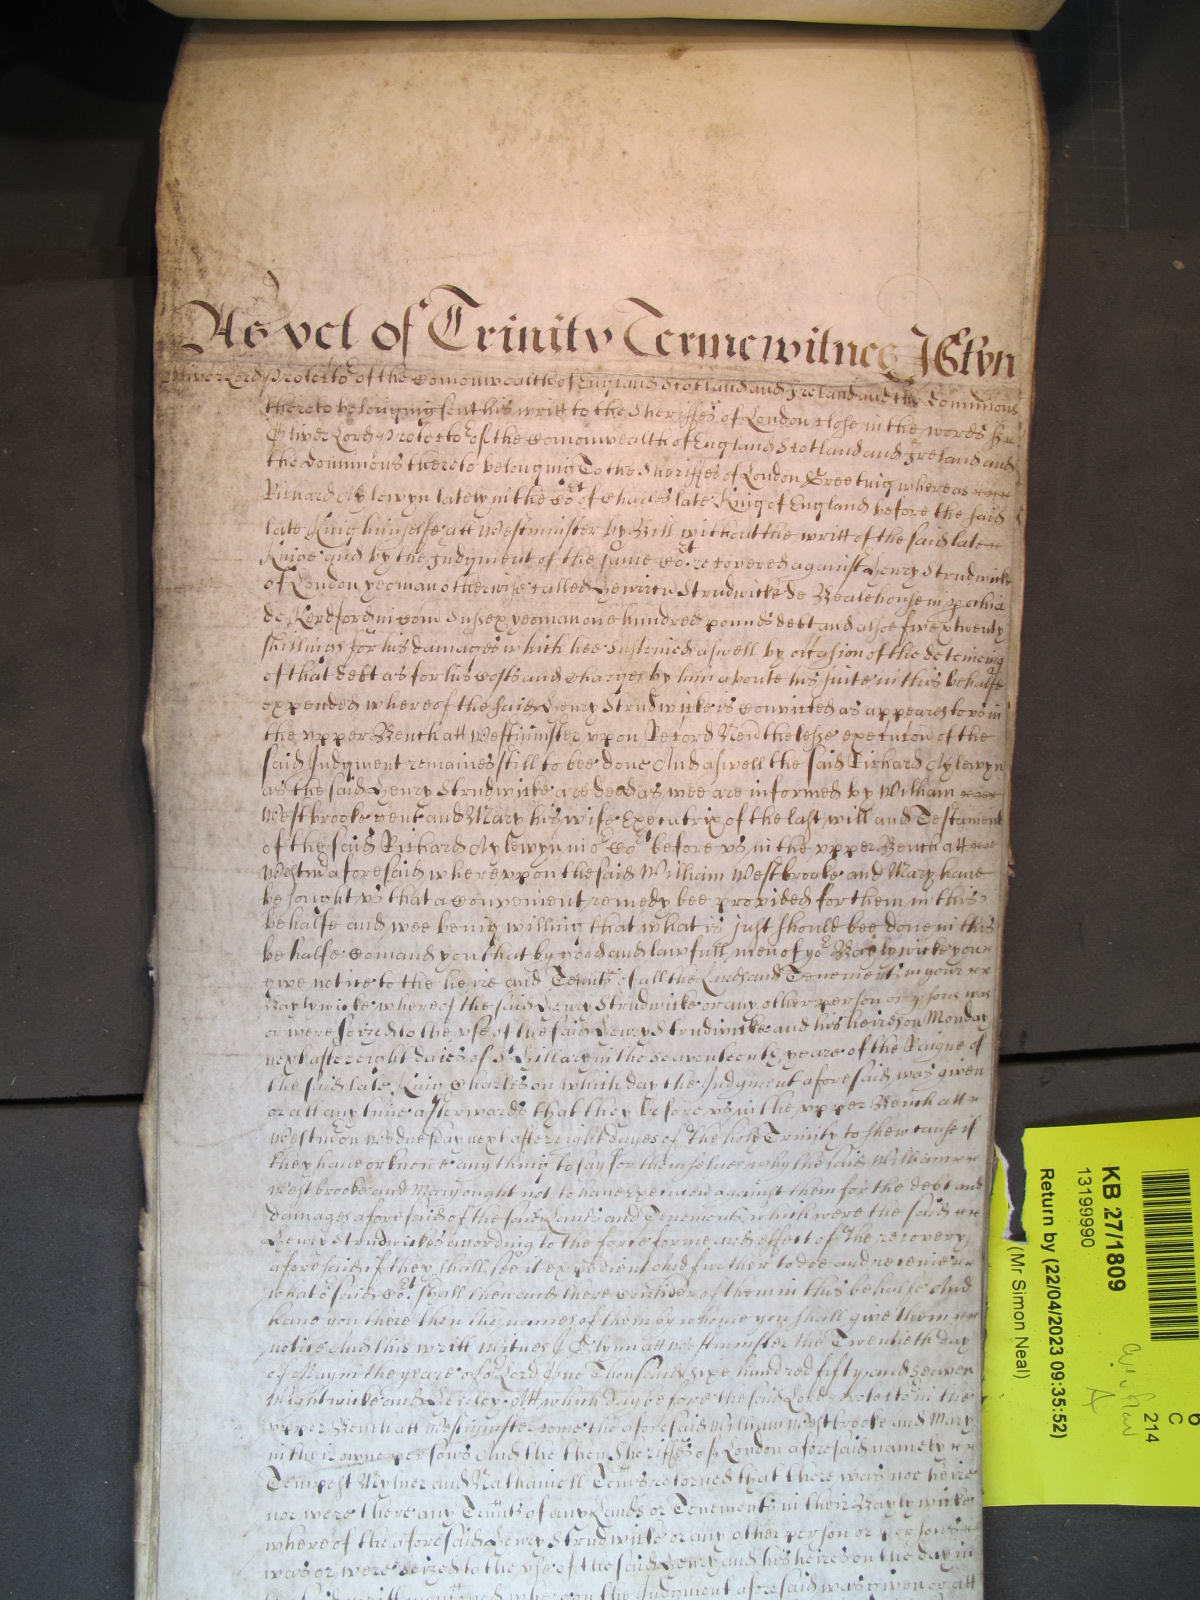 As yet of Trinity Terme witnes J Glyn
Oliver Lord Protector of the Comonwealth of England Scotland and Ireland and the Dominions
thereto belonging sent his writt to the Sheriffes of London close in the words
Oliver Lord Protector of the Comonwealth of England Scotland and Ireland and
the Dominions thereto belonging To the Sheriffes of London Greeting whereas
Richard Aylewyn lately in the Cort of Charles late King of England before the said
late King himselfe att Westminster by Bill without the writt of the said late
Kinge and by the Judgment of the same Cort recovered against Henry Strudwick
of London yeoman otherwise called Strudwicke de Bealehouse in pochia
de Kerdford in Com Sussex yeoman one hundred pounds debt and alsoe twenty
shillings for his damages which hee susteined aswell by occasion of the deteineing
of that debt as for his Costs and Charges by him aboute his suite in this behalfe
expended whereof the said Henry Strudwicke is Convicted as appeares to vs in
the vpper Bench att Westminster vpon Record Neuthelesse execution of the
said Judgment remaines still to bee done And aswell the said Richard Aylewyn
as the said Henry Strudwicke are dead as wee are informed by William
Westbrooke gent and Mary his wife Executrix of the last will and Testament
of the said Richard Aylewyn in or Cort before vs in the vpper Bench att
Westmr aforesaid wherevpon the said William Westbrooke and Mary haue
besought vs that a Convenient remedy bee provided for them in this
behalfe and wee being willing that what is just should bee done in this
behalfe Comand you that by good and lawfull men of yor Baylywicke you
give notice to the heire and Tenants of all the Lands and Tenements in your
Baylywicke whereof the said Henry Strudwicke or any other person or psons was
or were seized to the vse of the said Henry Strudwicke and his heires on Monday
next after eight daies of St Hillary in the Seaventeenth yeare of the Raigne of
the said late King Charles on which day the Judgment aforesaid was given
or att any time afterwards that they be before vs in the vpper Bench att
Westm on Wednesday next after eight dayes of the holy Trinity to shew cause if
they haue or know any thing to say for themselues why the said William
Westbrooke and Mary ought not to haue Execucon against them for the debt and
damages aforesaid of the said Lands and Tenements which were the said
Henry Strudwickes according to the force forme and effect of the recovery
aforesaid if they shall see it expedient And further to doe and receiue
what or said Cort shall then and there Consider of them in this behalfe And
haue you there then the names of them by whome you shall give them
notice And this writt witnes J Glynn att Westminster the Twentieth day
of May in the yeare of or Lord One Thousand sixe hundred fifty and seaven
Att which day before the said Lord Protector in the
vpper Bench att Westminster come the aforesaid William Westbrooke and Mary
in their owne persons And the then Sheriffes of London aforesaid namely
Tempest Mylner and Nathaniell Tems returned that there was noe heire
nor were there any Tenants of any Lands or Tenements in their Baylywicke
whereof the aforesaid Henry Strudwicke or any other person or persons
was or were seized to the vse of the said Henry and his heires on the day in
the said writt menconed whereon the Judgment aforesaid was given or att
KB 27/1809
13199990
Return by (22/04/2023 09:35:52)
(Mr Simon Neal)
6
C
214